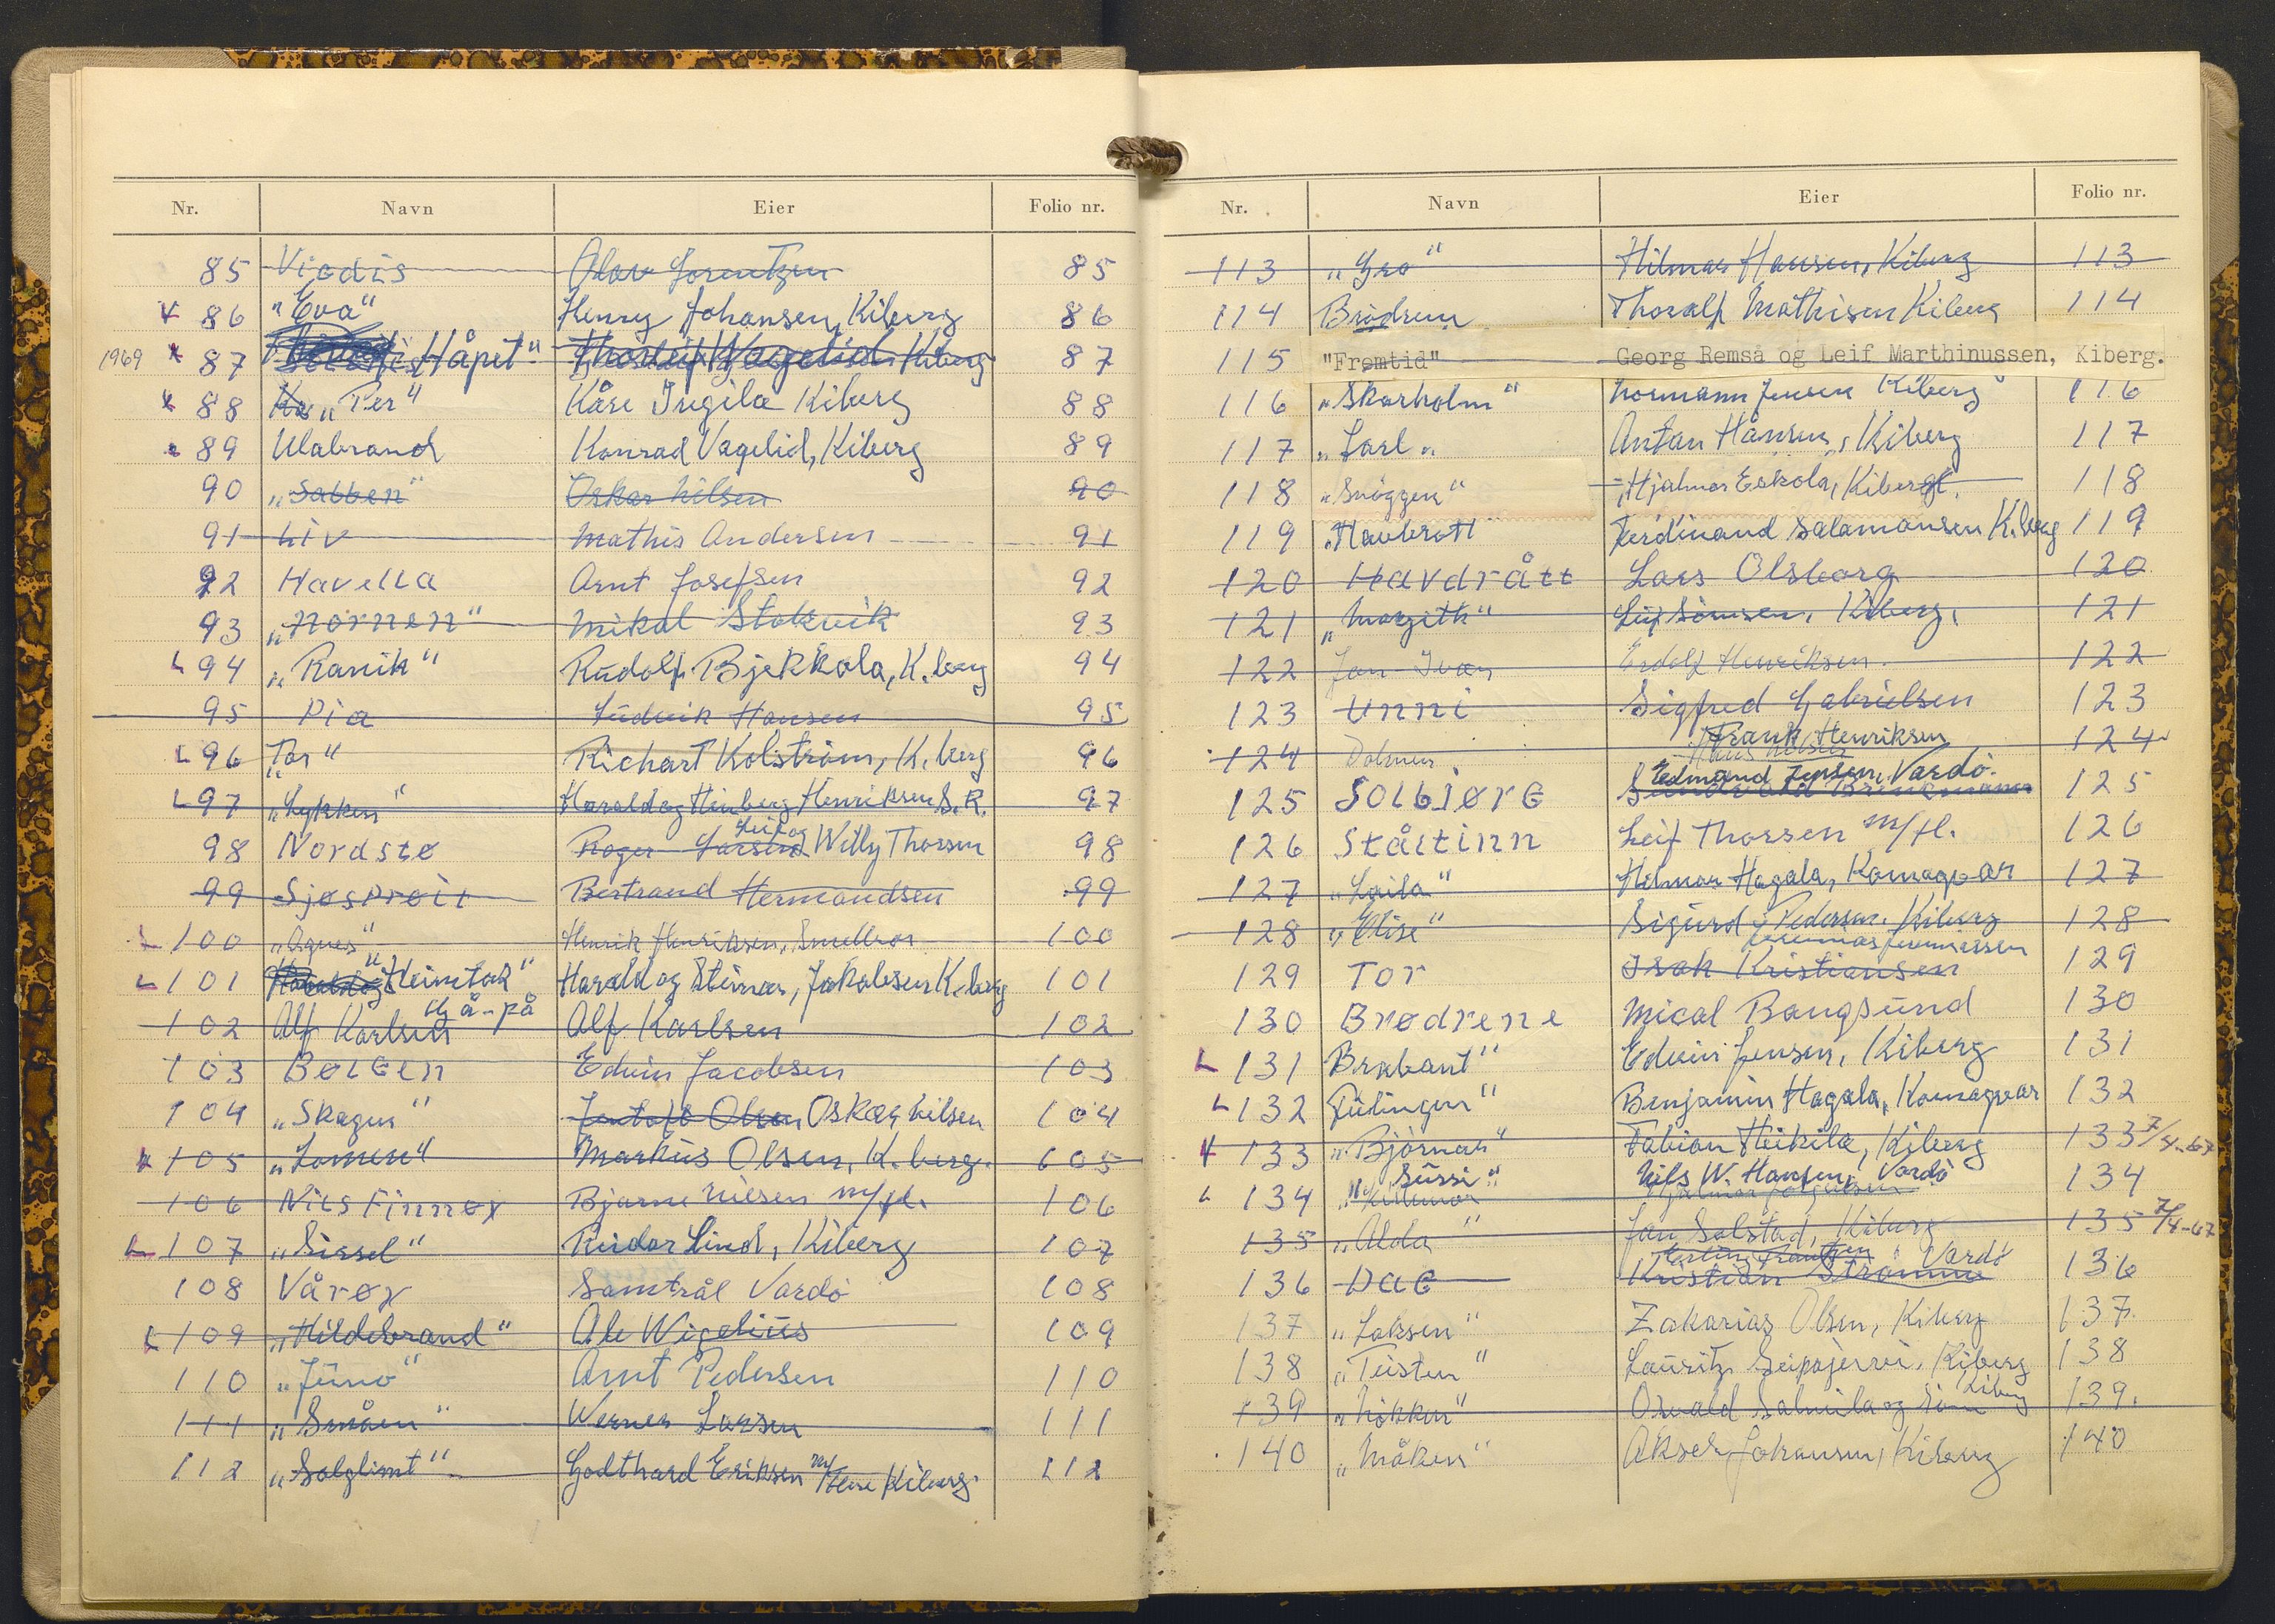 Nr. Navn Eier Folio nr.
85 Viodis Olav Lorentzen 85
86 "Eva" Henry Johansen, Kiberg 86
1969 87 Håpet" Thorleif Vagelid Kiberg 87
88 "Per" Kåre Ingila Kiberg 88
89 Ulabrand Konrad Vagelid, Kiberg 89
90 "Sabben" Oskar Nilsen 90
91 Liv Mathis Andersen 91
92 Havella Arnt Josefsen 92
93 "Nornen" Mikal Stokvik 93
94 "Ranik" Rudolf Bjekkola, K.berg 94
95 Pia Ludvik Hansen 95
96 "Tor" Richart Kolström, K.berg 96
97 "Lykken" Harald og Hinberg Henriksen S.K. 97
Leif og
98 Nordstø Roger Larsen Willy Thorsen 98
99 Sjøsprøit Bertrand Hermandsen 99
100 "Agnes" Henrik Henriksen, Smelror 100
101 "Heimtak" Harald og Steinar, Jakobsen K.berg 101
Hå-på
102 Alf Karlsen Alf Karlsen 102
103 Bølgen Edvin Jacobsen 103
104 "Skagen" Olsen Oskar Nilsen 104
105 "Lomen" Markus Olsen, K.berg. 105
106 Nils Finnøy Bjarne Nilsen m/fl. 106
107 "Sissel" Reidar Lind, Kiberg 107
108 Vårøy Samtrål Vardö 108
109 "Hildebrand" Ale Wigelius 109
110 "Juno" Arnt Pedersen 110
111 "Småen" Werner Larsen 111
112 "Solglimt" Godthard Eriksen m/flere Kiberg. 112
Nr. Navn Eier Folio nr.
113 "Gro" Hilmar Hansen, Kiberg 113
114 Brödrene Thoralf Mathisen Kiberg 114
115 "Fremtid" Georg Remså og Leif Marthinussen, Kiberg.
116 "Skarholm" Normann Jensen Kiberg 116
117 "Jarl" Anton Hansen, Kiberg 117
118 "Snöggen" Hjalmar Eskola, Kiberg. 118
119 "Havbrott" Ferdinand Salamonsen K.berg 119
120 Havdrått Lars Olsborg 120
121 "Margith" Leif Simsen, Kiberg. 121
122 Jan Ivan Erdolf Henriksen. 122
123 Unni Sigfred Gabrielsen 123
Frank Henriksen
124 124
Edmund Jensen, Vardö.
125 Solbjørg 125
126 Ståltinn Leif Thorsen m/fl. 126
127 "Laila" Hilmar Hagala, Komagvær 127
128 "Elise" Sigurd Pedersen. Kiberg 128
Jeremias Jeremiassen
129 Tor Isak Kristiansen 129
130 Brødrene Mical Bangsund 130
131 Brabant" Edvin Jensen, Kiberg 131
132 Fulingen" Benjamin Hagala, Komagvær 132
133 "Björnar" Fabian Heikila, Kiberg 133 7/4-67
"Sussi" Nils W. Hansen, Vardö
134 134
135 "Alda" Jan Solstad, Kiberg 135 7/4-67
Vardö
136 Dag Kristian Strømme 136
137 "Laksen" Zakarias Olsen, Kiberg 137.
138 "Teisten" Lauritz Seipäjervi. Kiberg 138
Kiberg
139 "Nökken" Osvald Salmila og Sönn 139.
140 "Måken" Aksel Johansen, Kiberg 140